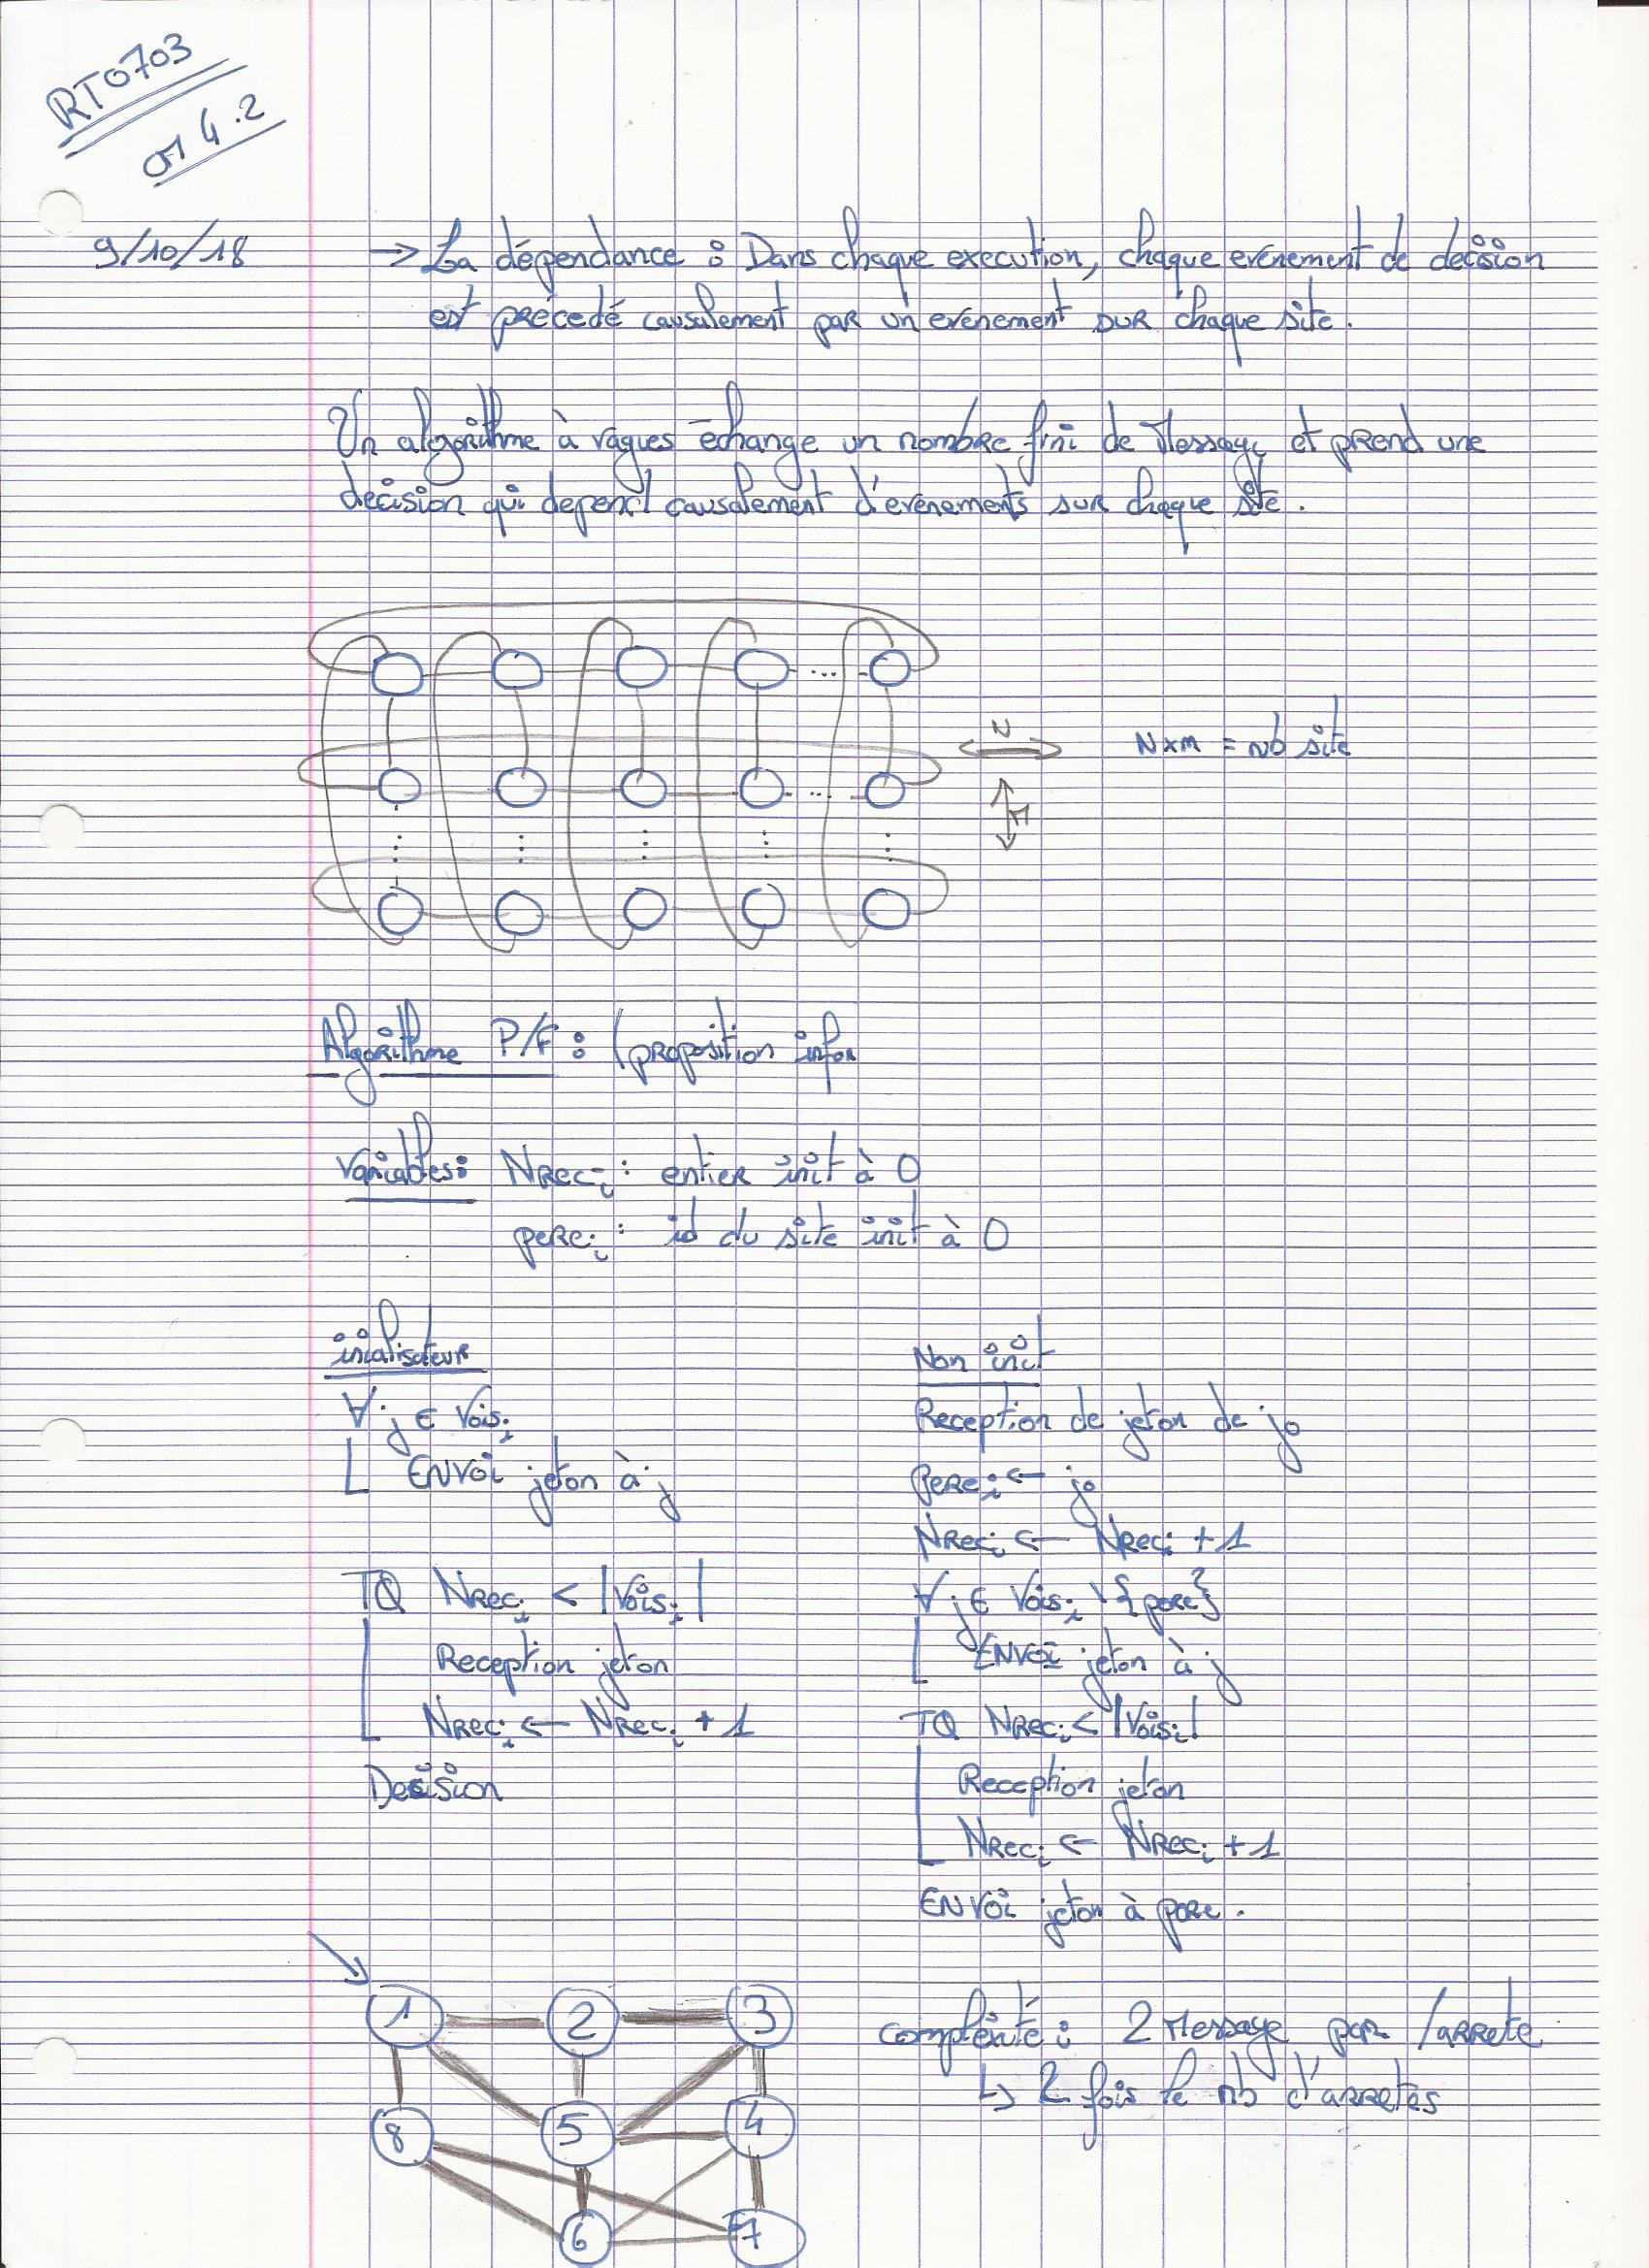 RT0703
CM 4.2
9/10/18
→ La dépendance : Dans chaque execution, chaque evénement de decision
est précedé causalement par un evénement sur chaque site.
Un algorithme à vagues échange un nombre fini de Message et prend une
decision qui depend causalement d'evénements sur chaque site.
...
N
N x m = nb site
...
M
Algorithme P/F : (proposition infor
Variables : Nrec_i : entier init à 0
pere_i : id du site init à 0
inialisateur
∀ j ∈ Vois_i
ENVOI jeton à j
TQ Nrec_i < |Vois_i|
Reception jeton
Nrec_i ← Nrec_i + 1
Decision
Non init
Reception de jeton de jo
Pere_i ← jo
Nrec_i ← Nrec_i + 1
∀ j ∈ Vois_i \ {pere}
ENVOI jeton à j
TQ Nrec_i < |Vois_i|
Reception jeton
Nrec_i ← Nrec_i + 1
ENVOI jeton à pere.
1 2 3
8 5 4
6 7
complexité : 2 Message par /arrete
↳ 2 fois le nb d'arretes